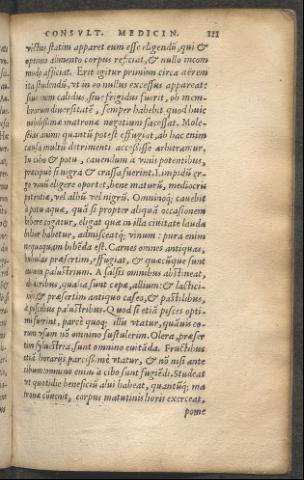 CONSVLT. MEDICIN. III
victus statim apparet eum esse eligendũ, qui &
optimo alimento corpus reficiat, & nullo incom
modo afficiat. Erit igitur primùm circa aërem
ita studendũ, vt in eo nullus excessus appareat:
siue enim calidus, siue frigidus fuerit, ob mem-
brorum diuersitatẽ, semper habebit quod huic
nobilissimæ matronæ negotium facessat. Mole-
stias animi quantũ potest effugiat, ab hac enim
causa multũ detrimenti accessisse arbitramur.
In cibo & potu, cauendum a vinis potentibus,
præcipuè si nigra & crassa fuerint. Limpidũ er-
go vinũ eligere oportet, benè maturũ, mediocris
potentiæ, vel albũ vel nigrũ. Omninoq; cauebit
à potu aquæ, quã si propter aliquã occasionem
bibere cogatur, eligat quæ in illa ciuitate lauda
biliter habetur, admisceatq; vinum: pura enim
nequaquam bibẽda est. Carnes omnes antiquas,
bubulas præsertim, effugiat, & quæcũque sunt
auium palustrium. A salsis omnibus abstineat,
ab acribus, qualia sunt cepæ, allium: & lactici-
nijs & præsertim antiquo caseo, & pastillibus,
à piscibus palustribus. Quod si etiã pisces opti-
mi fuerint, parcè quoq; illis vtatur, quãuis eo-
rum vsum nõ omnino sustulerim. Olera, præser
tim syluestria, sunt omnino euitãda. Fructibus
etiã horarijs parcissimè vtatur, & nõ nisi ante
cibum: omnino enim à cibo sunt fugiẽdi. Studeat
vt quotidie beneficiũ alui habeat, quantũq; ma
trona cõuenit, corpus matutinis horis exerceat,
pome